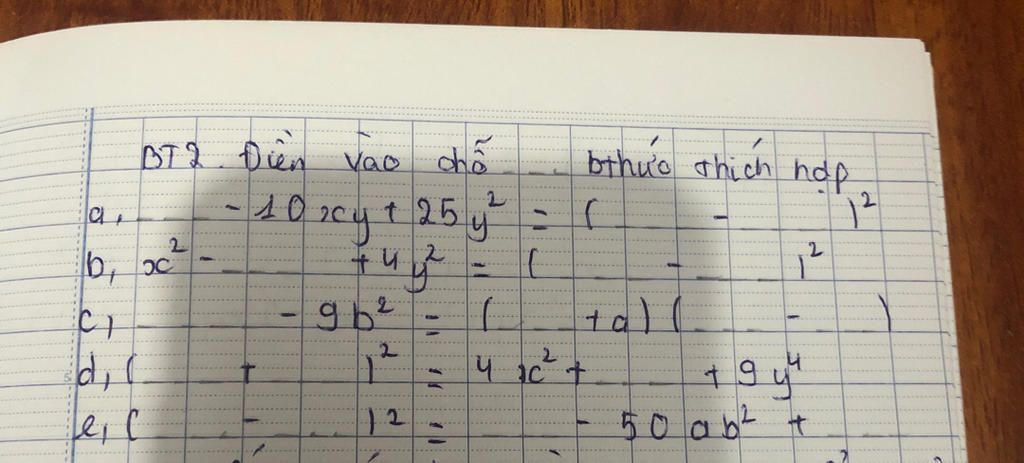 BT2. Điền vào chỗ ___ bthức thích hợp
a, ___ - 10xy + 25y² = ( ___ - ___ )²
b, x² - ___ + 4y² = ( ___ - ___ )²
c, ___ - 9b² = ( ___ + a) ( ___ - ___ )
d, ( ___ + ___ )² = 4x² + ___ + 9y⁴
e, ( ___ - ___ )² = ___ - 50ab² + ___